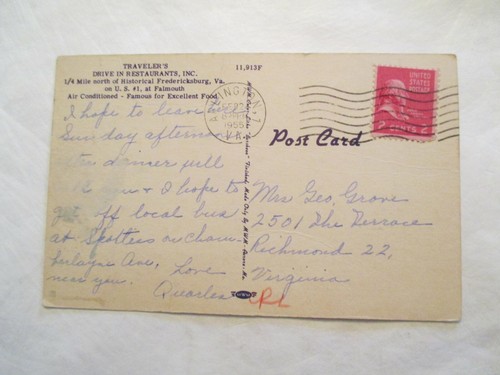 TRAVELER'S
DRIVE IN RESTAURANTS, INC.
1/4 Mile north of Historical Fredericksburg, Va.
on U. S. #1, at Falmouth
Air Conditioned - Famous for Excellent Food
11,913F
ARLINGTON
1955
VA.
UNITED
STATES
POSTAGE
2 CENTS 2
Post Card
I hope to leave
Sunday afternoon
dinner
& I hope to
get off local bus
at
Ave, Love
near you.
Quarles
Mrs Geo. Grove
2501 The Terrace
Richmond 22,
Virginia